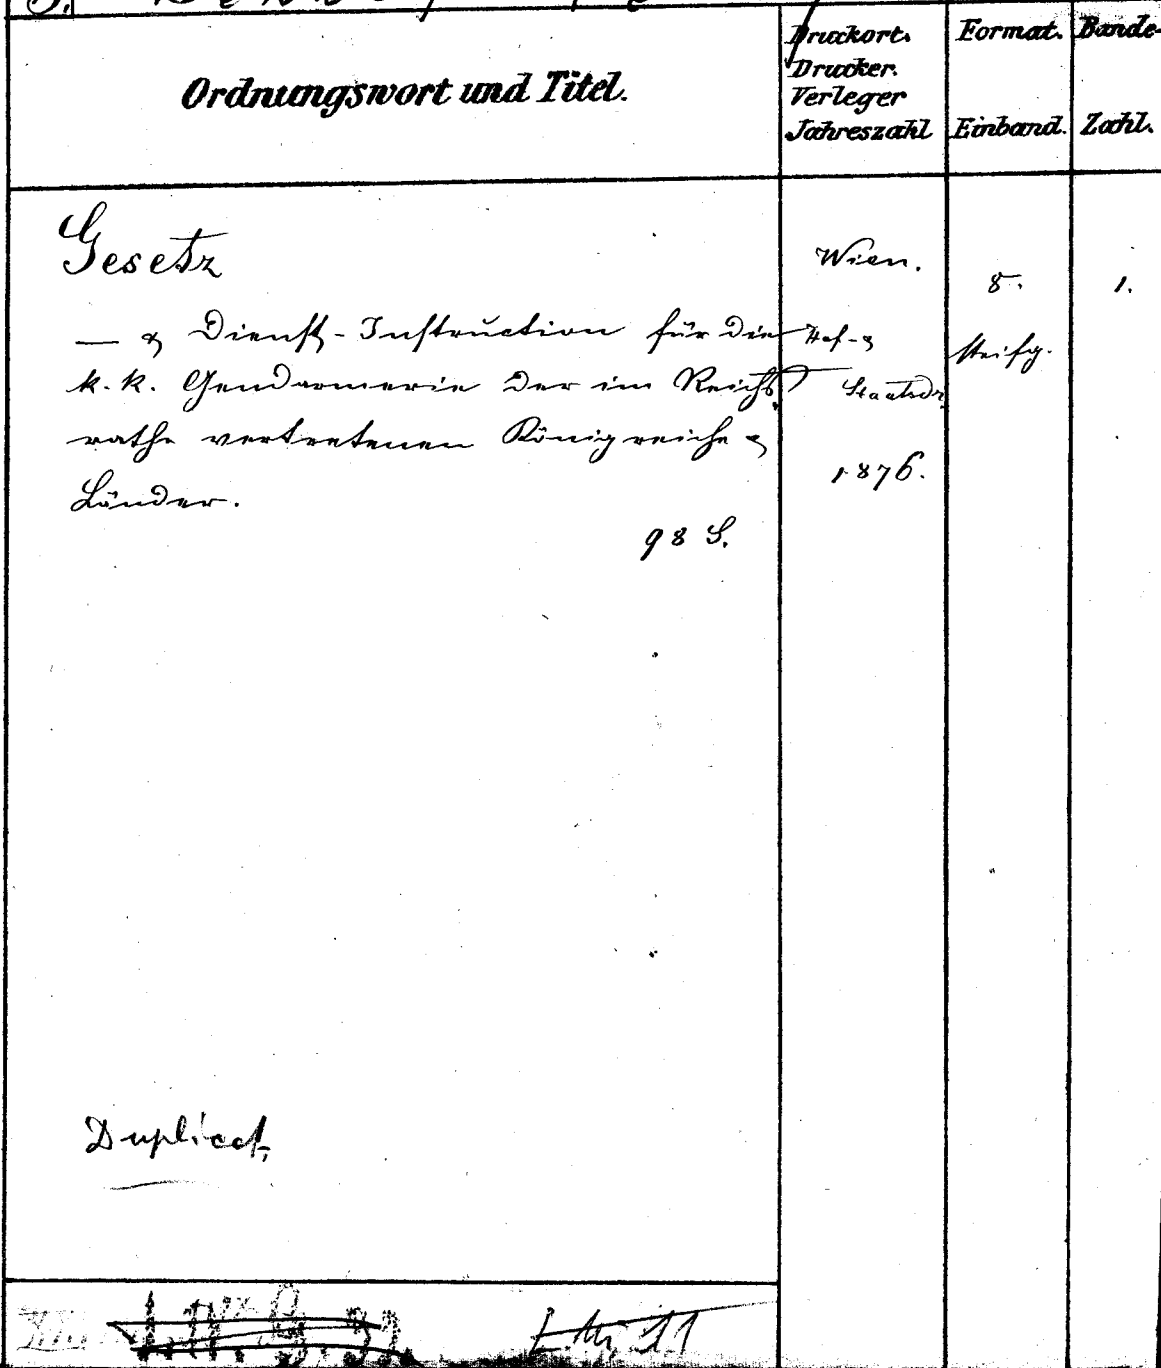 Ordnungswort und Titel.
Druckort.
Drucker.
Verleger
Jahreszahl
Format.
Einband.
Bände-
Zahl.
Gesetz
— & Dienst-Instruction für die
k. k. Gendarmerie der im Reichs
rathe vertretenen Königreiche &
Länder.
98 S.
Wien.
Hof- &
Staatsdr.
1876.
8.
steifg.
1.
Duplicat.